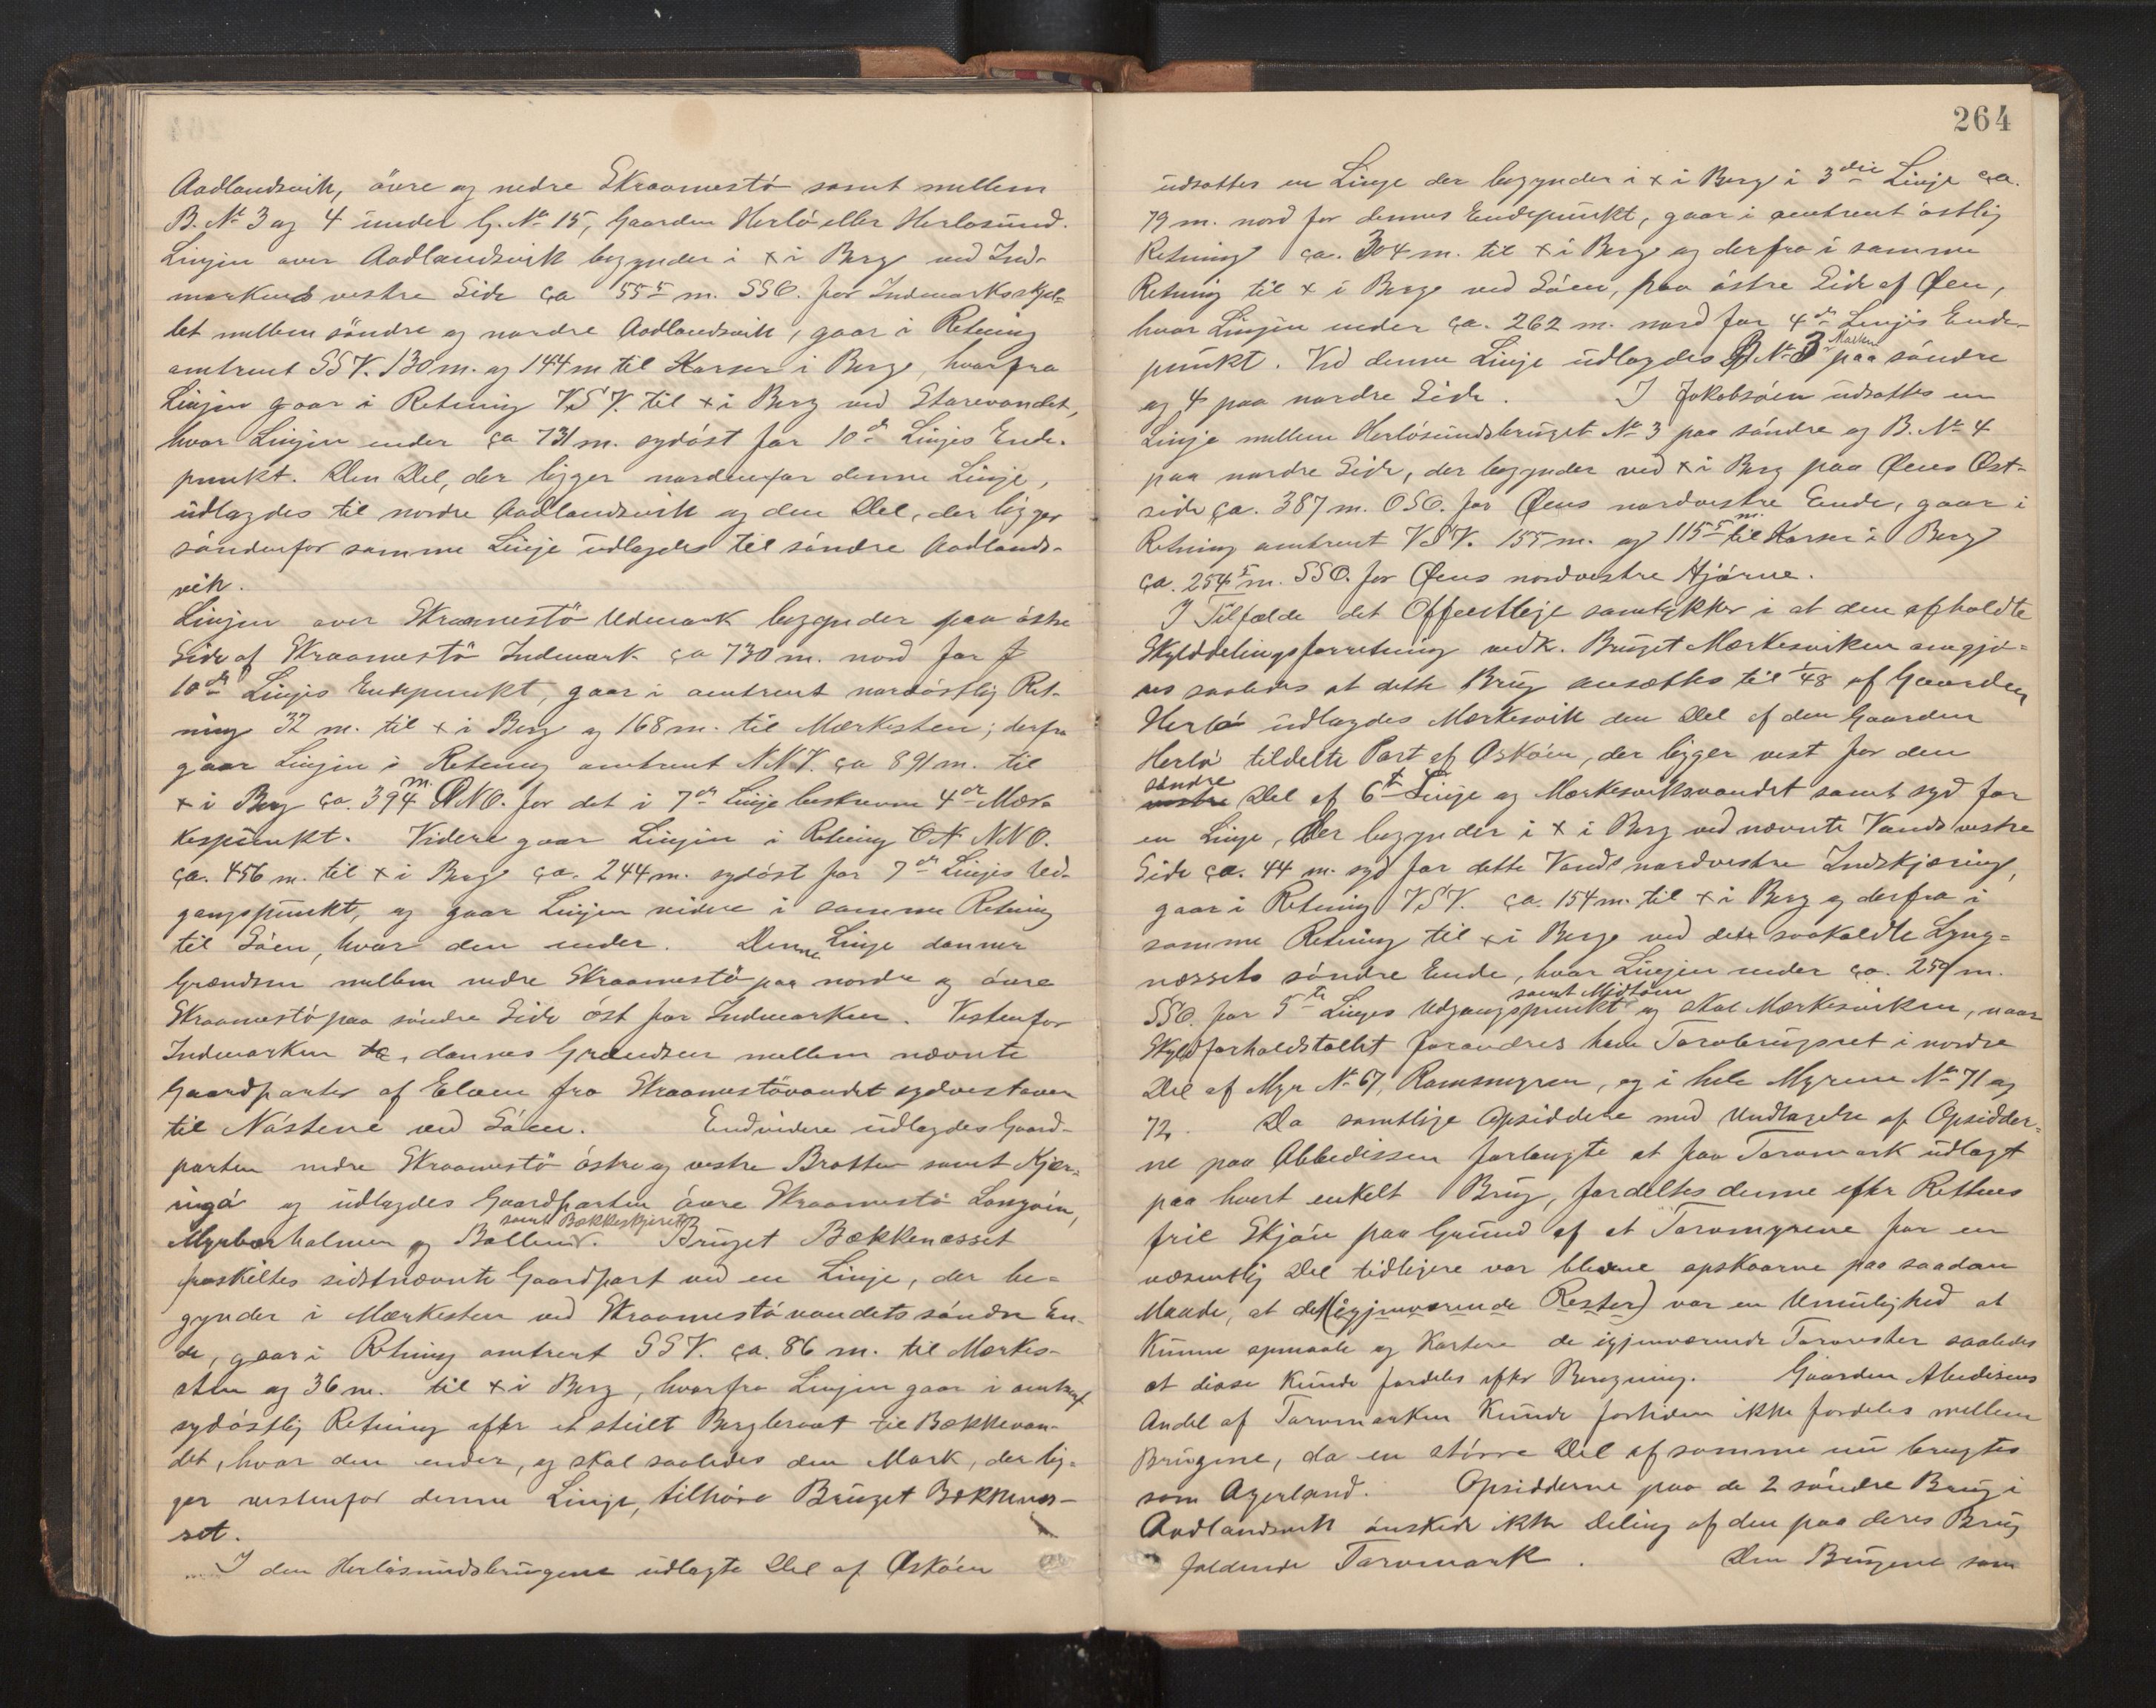 Aadlandsvik, övre og nedre Skraamestö samt mellem
B. No 3 og 4 under G. No 15, Gaarden Herlö eller Herlosund.
Linjen over Aadlandsvik begynder i x i Berg ved Ind-
markens vestre Side ca 55⁵ m. SSO. for Indmarksskjel-
let mellem söndre og nordre Aadlandsvik, gaar i Retning
omtrent SSV. 130 m. og 144 m til Korser i Berg, hvorfra
Linjen gaar i Retning VSV. til x i Berg ved Storevandet,
hvor Linjen ender ca 731 m. sydöst for 10de Linjes Ende-
punkt. Den Del, der ligger nordenfor denne Linje,
udlagdes til nordre Aadlandsvik og den Del, der ligger
söndenfor samme Linje udlagdes til söndre Aadlands-
vik.
Linjen over Skraamestö Udmark begynder paa östre
Side af Skraamestö Indmark ca 730 m. nord for
10de Linjes Endepunkt, gaar i omtrent nordöstlig Ret-
ning 32 m. til x i Berg og 168 m. til Mærkesten; derfra
gaar Linjen i Retning omtrent NNV. ca 891 m. til
x i Berg ca. 394 m. ONO. for det i 7de Linje beskrevne 4de Mær-
kespunkt. Videre gaar Linjen i Retning NNO.
ca. 456 m. til x i Berg ca. 244 m. sydöst for 7de Linjes Ud-
gangspunkt, og gaar Linjen videre i samme Retning
til Söen, hvor den ender. Denne Linje danner
Grændsen mellem nedre Skraamestö paa nordre og övre
Skraamestö paa söndre Side öst for Indmarken. Vestenfor
Indmarken, dannes Grændsen mellem nævnte
Gaardparter af Elven fra Skraamestövandet sydvestover
til Nöstene ved Söen. Endvidere udlagdes Gaard-
parten nedre Skraamestö östre og vestre Bratten samt Kjær-
ingö og udlagdes Gaardparten övre Skraamestö Langöen,
Myrbærholmen og Bollene samt Bækkeskjæret. Bruget Bækkenæsset
fraskiltes sidstnævnte Gaardpart ved en Linje, der be-
gynder i Mærkesten ved Skraamestövandets söndre En-
de, gaar i Retning omtrent SSV. ca. 86 m. til Mærkes-
sten og 36 m. til x i Berg, hvorfra Linjen gaar i omtrent
sydöstlig Retning efter et steilt Bergbrat til Bækkevan-
det, hvor den ender, og skal saaledes den Mark, der lig-
ger vestenfor denne Linje, tilhöre Bruget Bækkenæs-
set.
I den Herlösundsbrugene udlagte Del af Osköen
264
udsattes en Linje der begynder i x i Berg i 3die Linje ca.
79 m. nord for dennes Endepunkt, gaar i omtrent östlig
Retning ca. 304 m. til x i Berg og derfra i samme
Retning til x i Berge ved Söen, paa östre Side af Øen,
hvor Linjen ender ca. 262 m. nord for 4de Linjes Ende-
punkt. Ved denne Linje udlagdes B No 3 Marken paa söndre
og 4 paa nordre Side. I Jakobsöen udsattes en
Linje mellem Herlösundsbruget No 3 paa söndre og B. No 4
paa nordre Side, der begynder ved x i Berg paa Øens Øst-
side ca. 387 m. OSO. for Øens nordvestre Ende, gaar i
Retning omtrent VSV. 155 m. og 115⁵ m. til Korser i Berg
ca. 254⁵ m. SSO. for Øens nordvestre Hjörne.
I Tilfælde det Offentlige samtykker i at den afholdte
Skylddelingsforretning vedk. Bruget Mærkesviken omgjö-
res saaledes at dette Brug ansættes til 1/48 af Gaarden
Herlö udlagdes Mærkesvik den Del af den Gaarden
Herlö tildelte Part af Osköen, der ligger vest for den
söndre Del af 6te Linje og Mærkesviksvandet samt syd for
en Linje, der begynder i x i Berg ved nævnte Vands vestre
Side ca. 44 m. syd for dette Vands nordvestre Indskjæring,
gaar i Retning VSV. ca. 154 m. til x i Berg og derfra i
samme Retning til x i Berge ved det saakaldte Lyng-
næssets söndre Ende, hvor Linjen ender ca. 259 m.
SSO. for 5te Linjes Udgangspunkt samt Midtöen og skal Mærkesviken, naar
Skyldforholdstallet forandres have Torvbrugsret i nordre
Del af Myr No 67, Ramsmyren, og i hele Myrene No 71 og
72. Da samtlige Opsiddere med Undtagelse af Opsidder-
ne paa Abbedissen forlangte at faa Torvmark udlagt
paa hvert enkelt Brug, fordeltes denne efter Rettens
frie Skjön paa Grund af at Torvmyrene for en
væsentlig Del tidligere var blevne opskaarne paa saadan
Maade, at det (igjenværende Rester) var en Umulighed at
kunne opmaale og kartere de igjenværende Torvrester saaledes
at disse kunde fordeles efter Beregning. Gaarden Abedisens
Andel af Torvmarken kunde fortiden ikke fordeles mellem
Brugene, da en större Del af samme nu brugtes
som Agerland. Opsidderne paa de 2 söndre Brug i
Aadlandsvik önskede ikke Deling af den paa deres Brug
faldende Torvmark. Den Brugene som